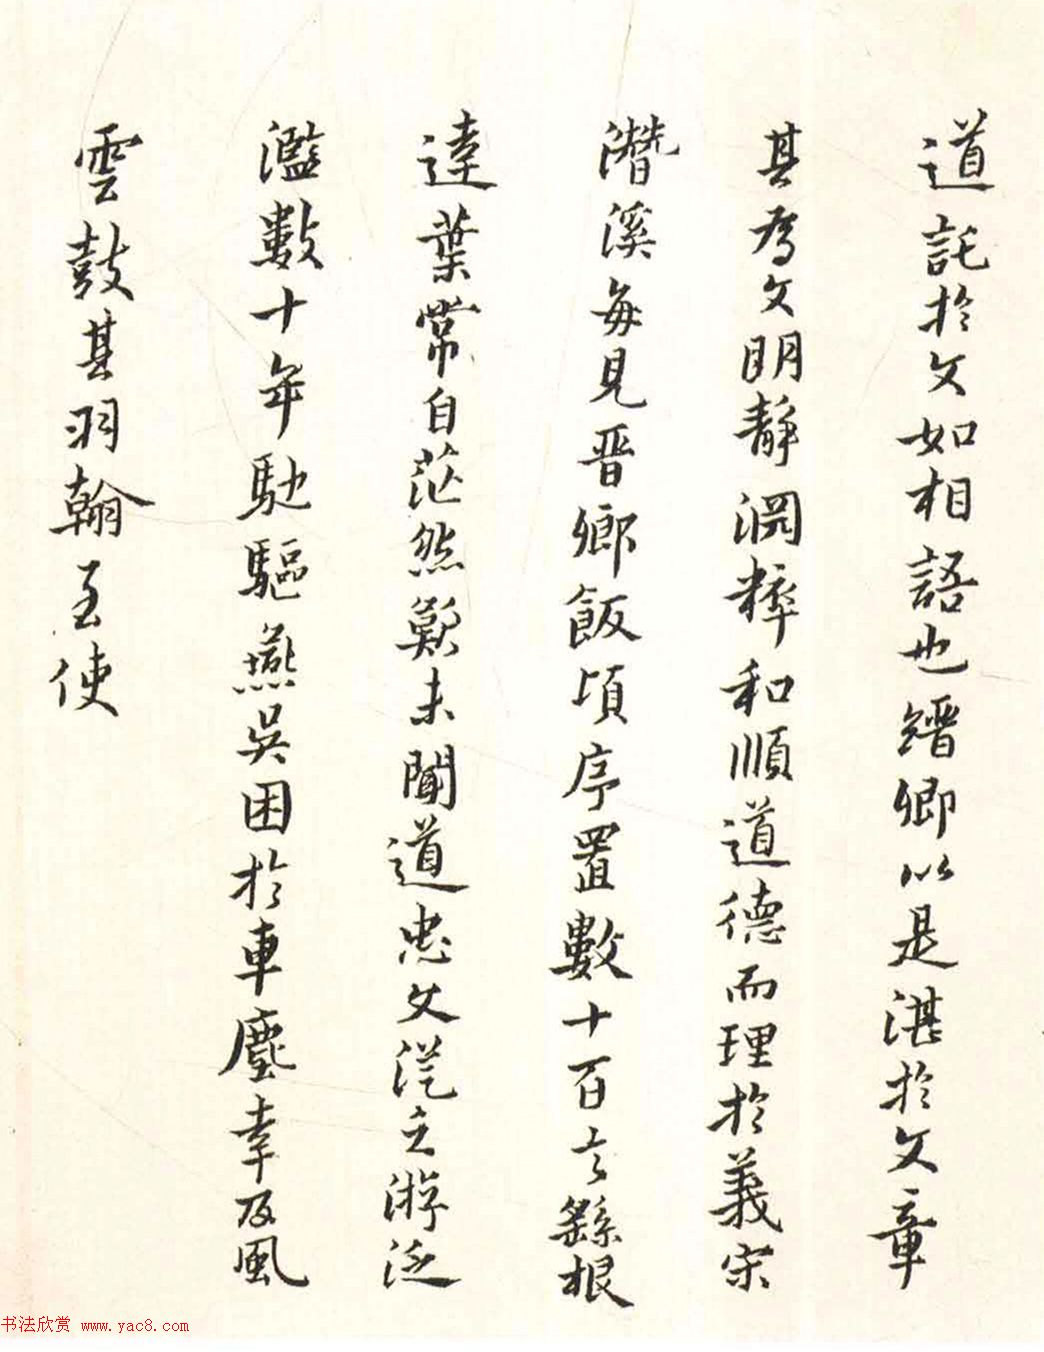 道託於文如相語也縉卿以是湛於文章
其為文明靜淵粹和順道德而理於義宋
潛溪每見晉卿飯頃序置數十百言繇根
達葉常自茫然歎未聞道忠文從之游泛
濫數十年馳驅燕吳困於車塵幸及風
雲鼓其羽翰至使
书法欣赏 www.yac8.com